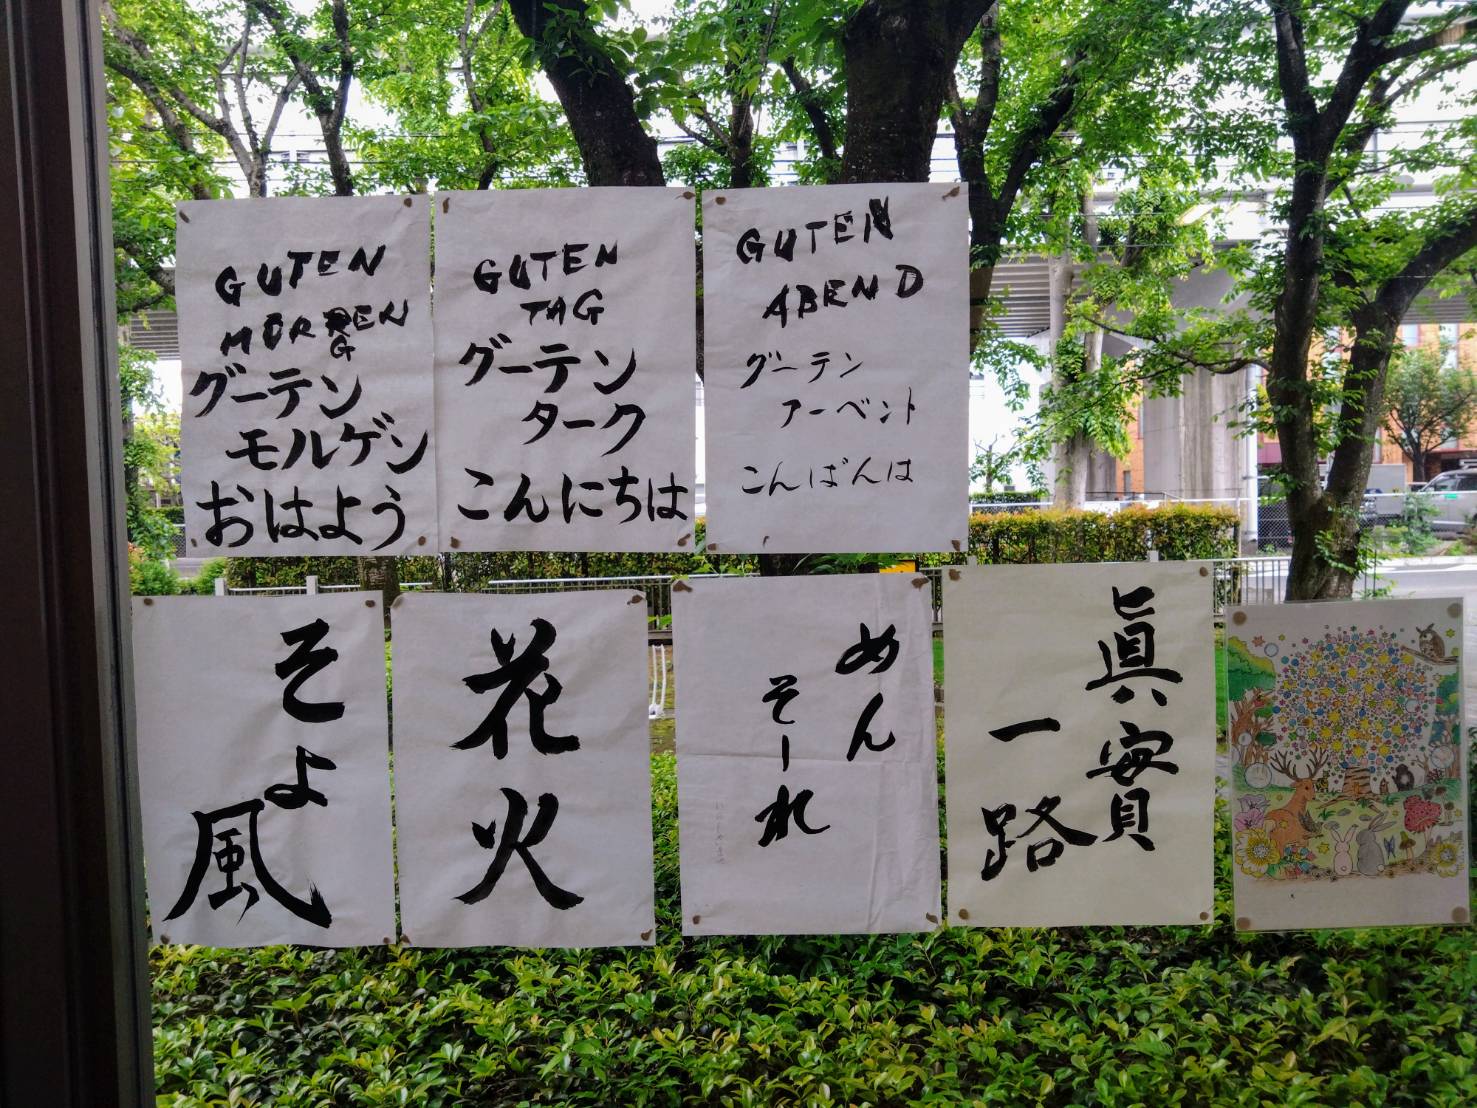 GUTEN
MORGEN
グーテン
モルゲン
おはよう
GUTEN
TAG
グーテン
ターク
こんにちは
GUTEN
ABEND
グーテン
アーベント
こんばんは
そよ
風
花火
めん
そーれ
眞實
一路